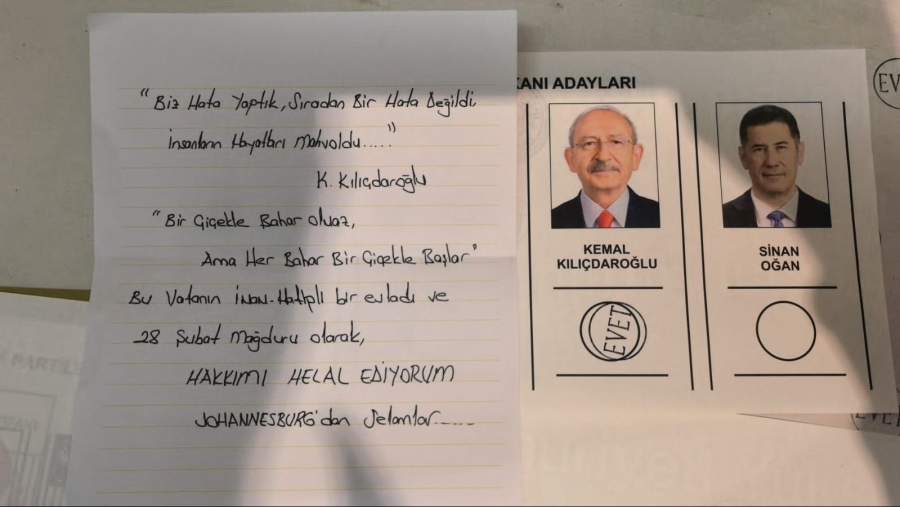 "Biz Hata Yaptık, Sıradan Bir Hata Değildi
İnsanların Hayatları Mahvoldu....."
K. Kılıçdaroğlu
"Bir Çiçekle Bahar olmaz,
Ama Her Bahar Bir Çiçekle Başlar"
Bu Vatanın İmam-Hatipli bir evladı ve
28 Şubat Mağduru olarak,
HAKKIMI HELAL EDİYORUM
JOHANNESBURG'dan Selamlar.....
KANI ADAYLARI
KEMAL
KILIÇDAROĞLU
EVET
SİNAN
OĞAN
EVET
EVET